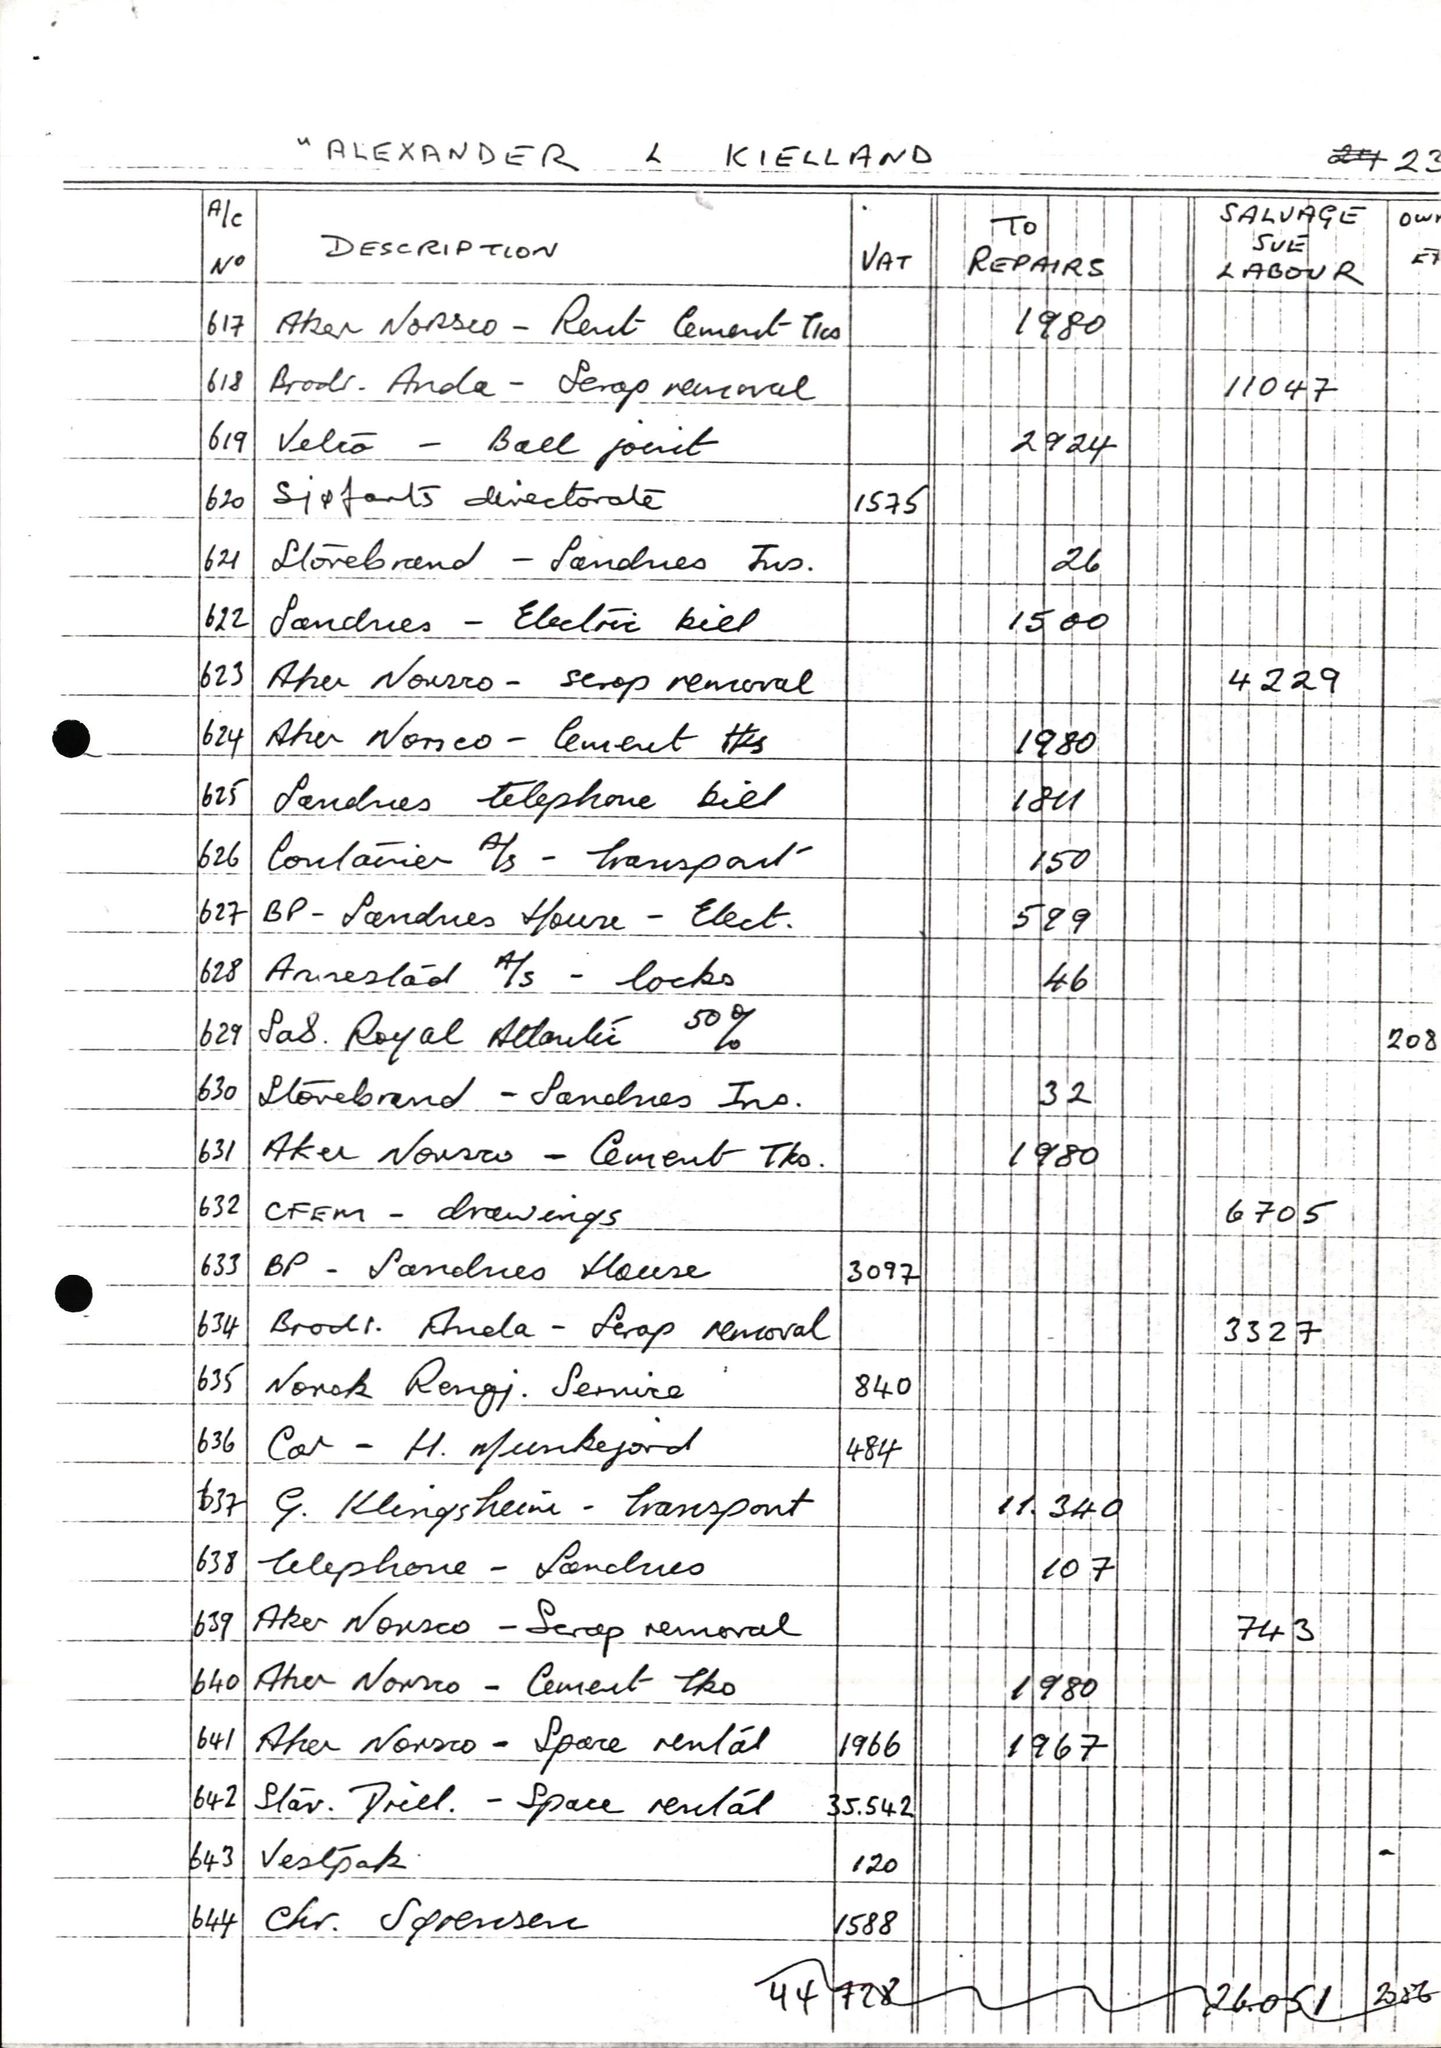 "ALEXANDER L KIELLAND 23
A/C No DESCRIPTION VAT TO REPAIRS SALVAGE SUE LABOUR
617 Aker Norsco - Rent Cement Tks 1980
618 Brodr. Anda - Scrap removal 11047
619 Velco - Ball joint 2924
620 Sjøfarts directorate 1575
621 Storebrand - Sandnes Ins. 26
622 Sandnes - Electric bill 1500
623 Aker Norsco - scrap removal 4229
624 Aker Norsco - Cement tks 1980
625 Sandnes telephone bill 1811
626 Container A/S - transport 150
627 BP - Sandnes House - Elect. 599
628 A/S - locks 46
629 SaS. Royal Atlantic 50% 208
630 Storebrand - Sandnes Ins. 32
631 Aker Norsco - Cement Tks. 1980
632 CFEM - drawings 6705
633 BP - Sandnes House 3097
634 Brodr. Anda - Scrap removal 3327
635 Norsk Rengj. Service 840
636 Car - H. Munkejord 484
637 G. Klingsheim - transport 11.340
638 telephone - Sandnes 107
639 Aker Norsco - Scrap removal 743
640 Aker Norsco - Cement tks 1980
641 Aker Norsco - Space rental 1966 1967
642 Stav. Drill. - Space rental 35.542
643 Vestpak 120
644 Chr. Sørensen 1588
44 728 26.051